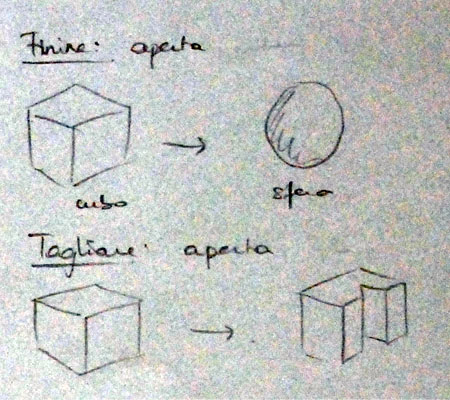 aperta
cubo
sfera
Tagliare: aperta